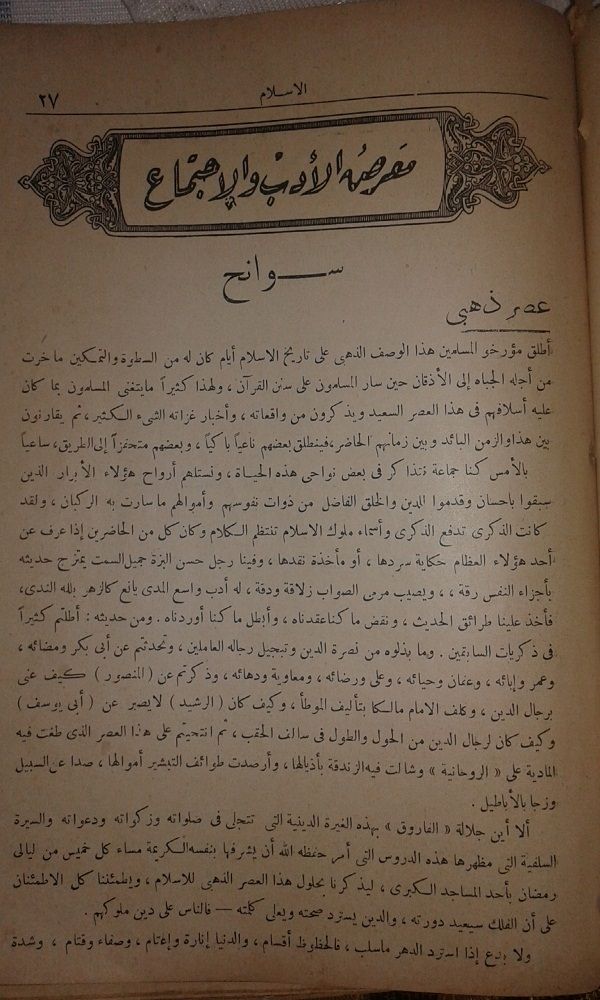 الاسلام
٢٧
معرض الأدب والاجتماع
سوانح
عصر ذهبي
أطلق مؤرخو المسلمين هذا الوصف الذهبى على تاريخ الاسلام أيام كان له من السطوة والتمكين ما خرت
من أجله الجباه إلى الأذقان حين سار المسلمون على سنن القرآن، ولهذا كثيراً ما يتغنى المسلمون بما كان
عليه أسلافهم فى هذا العصر السعيد ويذكرون من واقعاته، وأخبار غزاته الشىء الكثير، ثم يقارنون
بين هذا والزمن البائد وبين زمانهم الحاضر، فينطلق بعضهم ناعياً باكياً، وبعضهم متحفزاً إلى الطريق، ساعياً
بالأمس كنا جماعة نتذاكر فى بعض نواحى هذه الحياة، ونستلهم أرواح هؤلاء الأبرار الذين
سبقوا باحسان وقدموا للدين والخلق الفاضل من ذوات نفوسهم وأموالهم ما سارت به الركبان، ولقد
كانت الذكرى تدفع الذكرى وأسماء ملوك الاسلام تنتظم الكلام وكان كل من الحاضرين إذا عرف عن
أحد هؤلاء العظام حكاية سردها، أو مأخذة نقدها، وفينا رجل حسن البزة جميل السمت يمتزج حديثه
بأجزاء النفس رقة،، ويصيب مرمى الصواب زلاقة ودقة، له أدب واسع المدى يانع كالزهر بلله الندى،
فأخذ علينا طرائق الحديث، ونقض ما كنا عقدناه، وأبطل ما كنا أوردناه. ومن حديثه: أطلتم كثيراً
فى ذكريات السابقين. وما بذلوه من نصرة الدين وتبجيل رجاله العاملين، وتحدثتم عن أبى بكر ومضائه،
وعمر وإبائه، وعثمان وحيائه، وعلى ورضائه، ومعاوية ودهائه، وذكرتم عن (المنصور) كيف عنى
برجال الدين، وكلف الامام مالكا بتأليف الموطأ، وكيف كان (الرشيد) لا يصبر عن (أبى يوسف)
وكيف كان لرجال الدين من الحول والطول فى سالف الحقب، ثم انتحيتم على هذا العصر الذى طغت فيه
المادية على « الروحانية » وشالت فيه الزندقة بأذيالها، وأرصدت طوائف التبشير أموالها، صدا عن السبيل
وزجا بالأباطيل.
ألا أين جلالة « الفاروق » بهذه الغيرة الدينية التى تتجلى فى صلواته وزكواته ودعواته والسيرة
السلفية التى مظهرها هذه الدروس التى أمر حفظه الله أن يشرفها بنفسه الكريمة مساء كل خميس من ليالى
رمضان بأحد المساجد الكبرى، ليذكرنا بحلول هذا العصر الذهبى للاسلام، ويطمئننا كل الاطمئنان
على أن الفلك سيعيد دورته، والدين يسترد صحته ويعلى كلمته — فالناس على دين ملوكهم.
ولا بدع إذا استرد الدهر ما سلب، فالحظوظ أقسام، والدنيا إنارة وإغتام، وصفاء وقتام، وشدة